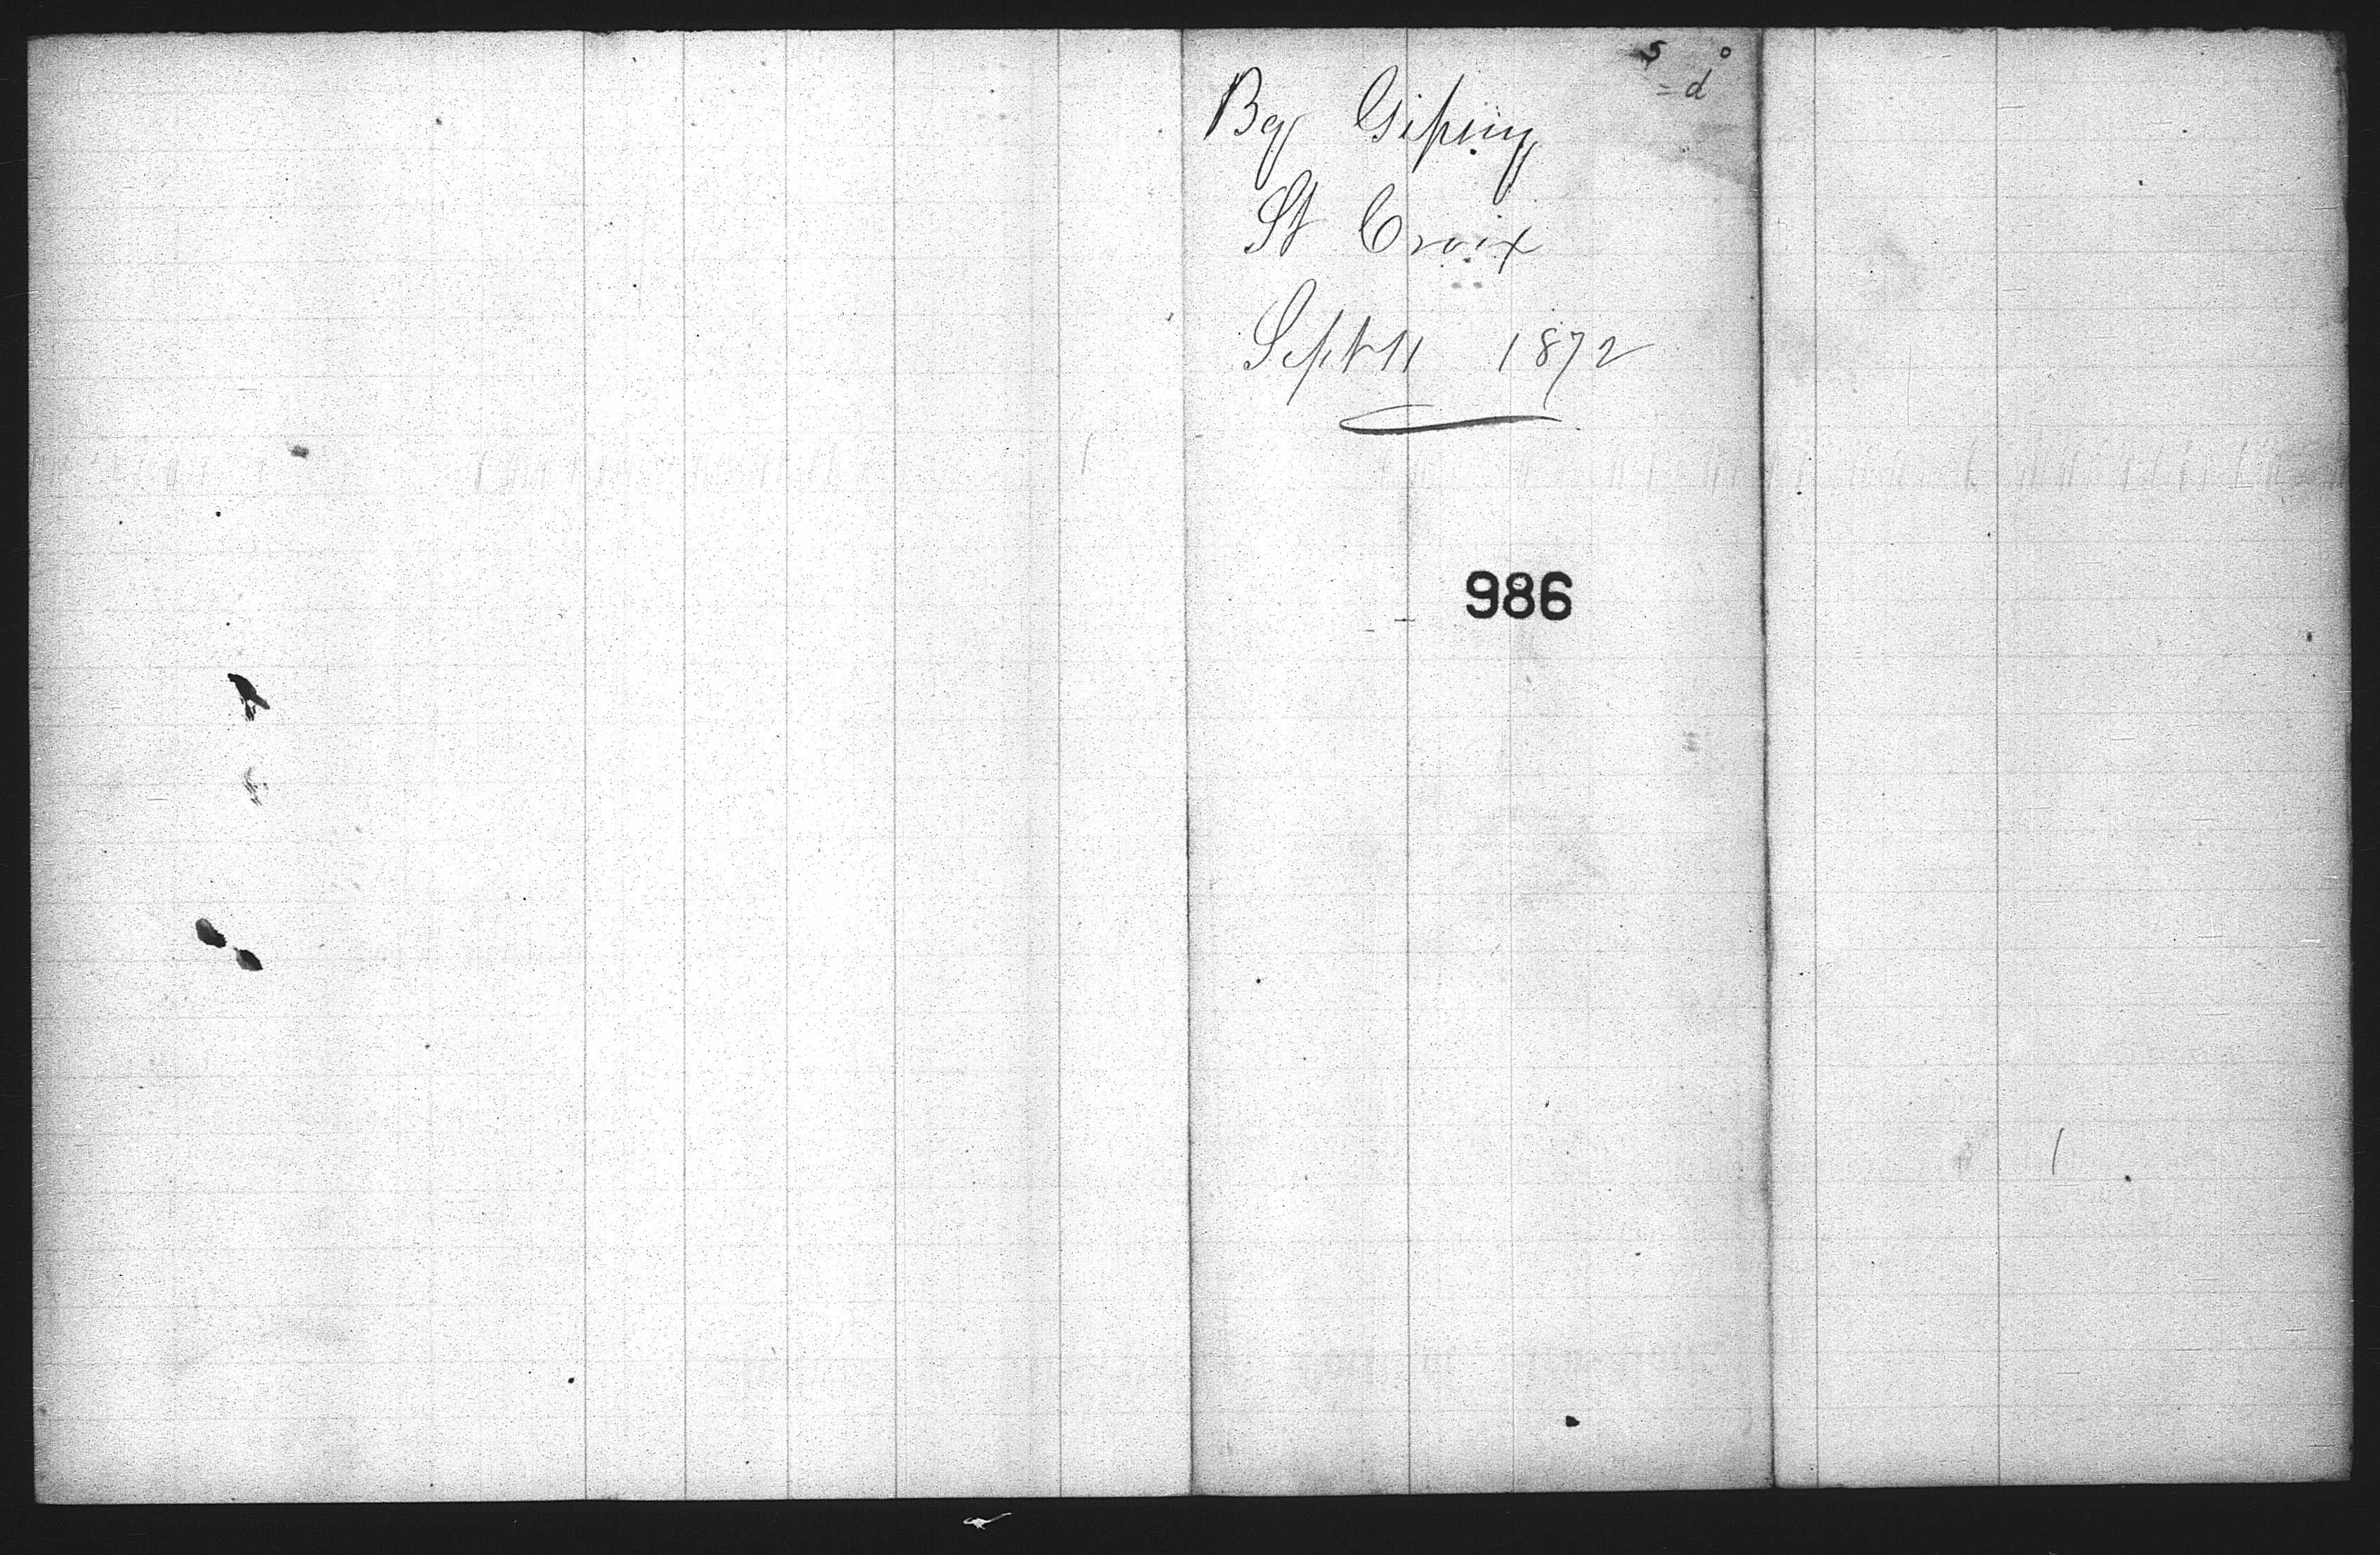 Bg Gipsey
St Croix
Sept 11 1872
986